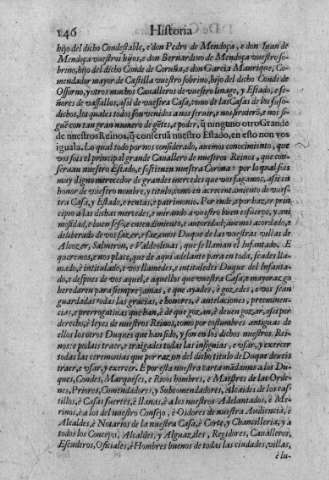 246 Historia
hijo del dicho Condestable, e don Pedro de Mendoça, e don Iuan de
Mendoça vuestros hijos, e don Bernardino de Mendoça vuestro so-
brino, hijo del dicho Conde de Coruña, e don Garcia Manrique, Co-
mendador mayor de Castilla vuestro sobrino, hijo del dicho Conde de
Ossorno, y otros muchos Cavalleros de vuestro linage, y Estado, e se-
ñores de vasallos, assi de vuestra Casa, como de las Casas de los suso-
dichos, los quales todos son venidos a nos servir, e nos sirvierō, e nos si-
guē con tan gran numero de gētes, e poder, q̄ ninguno otro Grande
de nuestros Reinos, q̄ consernā nuestro Estado, en esto non vos
iguala. Lo qual todo por nos considerado, avemos conocimiento, que
vos sois el principal grande Cavallero de nuestros Reinos, que con-
servan nuestro Estado, e sostienen nuestra Corona: por lo qual sois
muy digno merecedor de grandes mercedes que vos fagamos, assi en
honor de vuestro nombre, y titulo, como en acrecentamiento de vues-
tra Casa, y Estado, e rentas, e patrimonio. Por ende, a por hazer prin-
cipio a las dichas mercedes, e mirando a vuestro buen esfuerço, y ani-
mosidad, e buen seso, e entendimiento, e autoridad, avemos acordado, e
deliberado de vos fazer, e fazemos Duque de las vuestras villas de
Alcozer, Salmeron, e Valdolivas, que se llaman el Infantado. E
queremos, e nos place, que de aqui adelante para en toda,
mado, è intitulado, è vos llamedes, e intituledes Duque del Infanta-
do, e despues de vos aquel, e aquellos que vuestra Casa, e mayorazgo
heredaren para siempre jamas, e que ayades, è gozedes, e vos sean
guardadas todas las gracias, e honores, è antelaciones, preeminen-
cias, e prerrogativas que han, è de que gozan, è deuen gozar, assi por
derecho, è leyes de nuestros Reinos, como por costumbres antiguas de
ellos los otros Duques que han sido, y son en los dichos nuestros Rei-
nos: e podais traer, e traigades todas las insignias, e vsar, y exercer
todas las ceremonias que por razon del dicho titulo de Duque deveis
traer, e vsar, y exercer. E por esta nuestra carta mādamos a los Du-
ques, Condes, Marqueses, e Ricos hombres, e Maestres de las Orde-
nes, Priores, Comendadores, y Subcomendadores, Alcaides de los cas-
tillos, è Casas fuertes, è llanas, è a los nuestros Adelantados, è Me-
rinos, è a los del nuestro Consejo, è Oidores de nuestra Audiencia, è
Alcaldes, è Notarios de la nuestra Casa, è Corte, y Chancilleria, y a
todos los Concejos, Alcaldes, y Alguaziles, Regidores, Cavalleros,
Escuderos, Oficiales, è Hombres buenos de todas las ciudades, villas,
è lu-